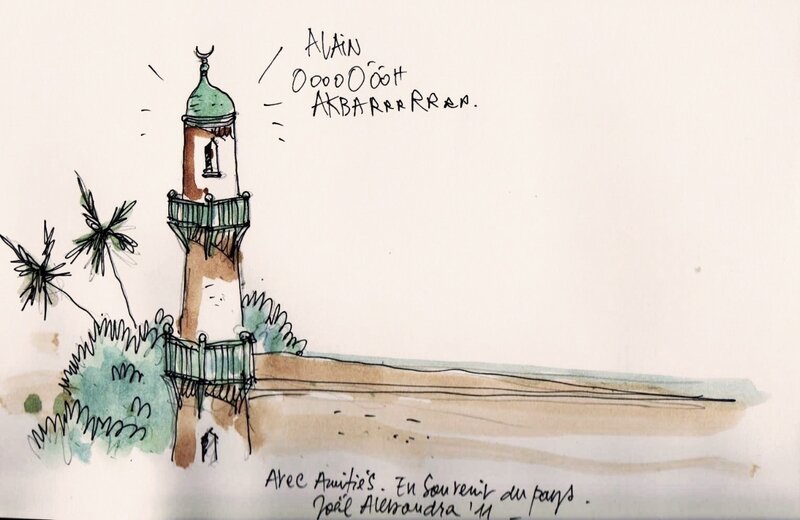 ALAIN
OOOOOÔÔH
AKBARRRRRRR.
Avec Amitiés. En Souvenir du pays.
Joël Alessandra '11